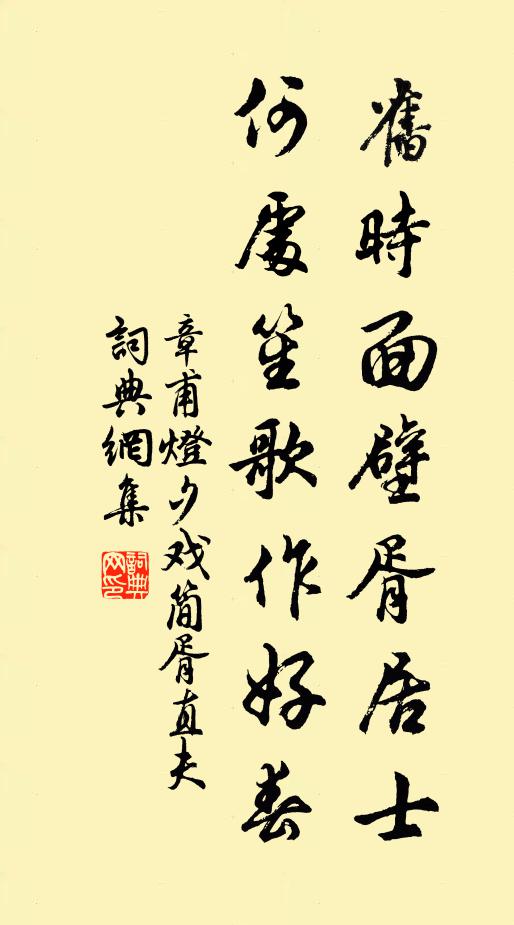 舊時面壁胥居士
何處笙歌作好春
章甫燈夕戏简胥直夫
詞典網集
詞典網印